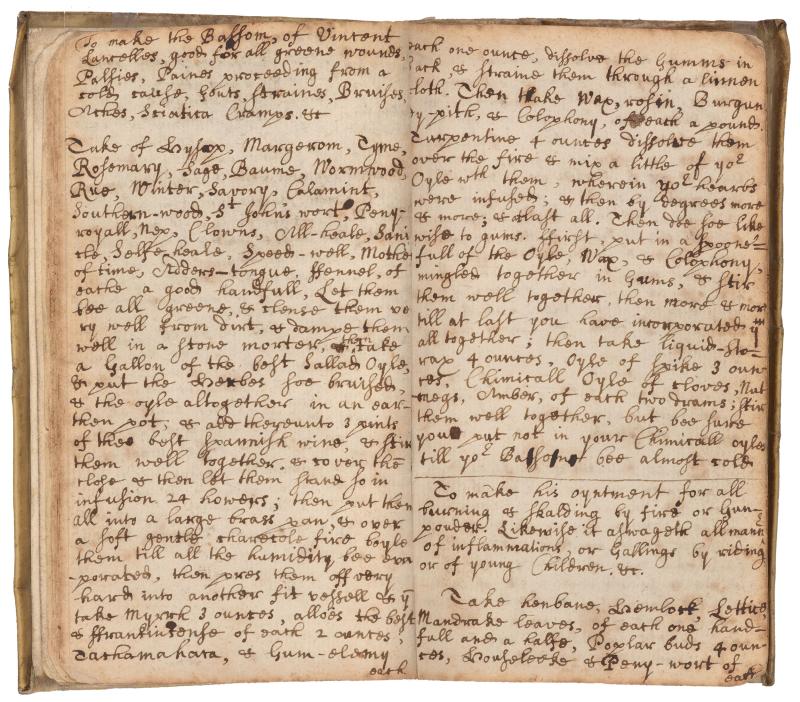 To make the Balsom, of Vincent
Lancelles, good for all greene wounds,
Palsies, Paines proceeding from a
cold cause, Gouts, straines, Bruises,
Aches, Sciatica Cramps. &c
Take of Hysop, Margerom, Tyme,
Rosemary, Sage, Baume, Wormwood,
Rue, Winter, Savory, Calamint,
Southern-wood, St Johns wort, Peny-
royall, Nep, Clowns, All-heale, Sani
cle, Selfe heale, Speed-well, Mothe
of time, Adders-tongue, ffennel, of
eache a good handfull, Let them
bee all greene, & clense them ve
ry well from dirt, & dampe them
well in a stone morter, then take
a Gallon of the best Sallad Oyle,
& put the Herbes soe bruised,
& the oyle altogether in an ear-
then pot, & add thereunto 3 pints
of thee best spannish wine, & stir
them well together, & cover the
close & then let them stand so in
infusion 24 howers; then put them
all into a large brass pan, & over
a soft gentle charecole fire boyle
them till all the humidity bee eva
-porated, then pres them off very
hard into another fit vessell & yn
take Myrrh 3 ounces, alloes the best
& ffrankinsense of each 2 ounces,
Tachamahata, & Gum-elemy
each
each one ounce, dissolve the Gumms in
sack, & straine them through a linnen
cloth. Then take Wax, rosin, Burgun
dy-pith, & Colophony, of each a pound.
Turpentine 4 ounces dissolve them
over the fire & mix a little of yor
Oyle wth them, wherein yor hearbs
were infused; & then by degrees more
& more; & att last all. Then doe soe like
wise to gums. ffirst, put in a spoone-
full of the Oyle, Wax, & Colophony,
mingled together in Gums, & stir
them well together, then more & mor
till at last you have incorporated ym
all together; then take liquid-sto-
rax 4 ounces, Oyle of spike 3 oun
ces, Chimicall Oyle of cloves, Nut
megs, Amber, of each two drams; stir
them well together, but bee sure
you put not in your Chimicall oyles
till yor Balsome bee almost cold
To make his oyntment for all
burning & skalding by fire or Gun-
pouder. Likewise it aswageth all mannr
of inflammations, or Gallings by riding
or of young Children. &c.
Take henbane, Hemlock, Lettice,
Mandrake leaves, of each one hand-
full and a halfe, Poplar buds 4 oun
ces, Houseleeke & Peny-wort of
each